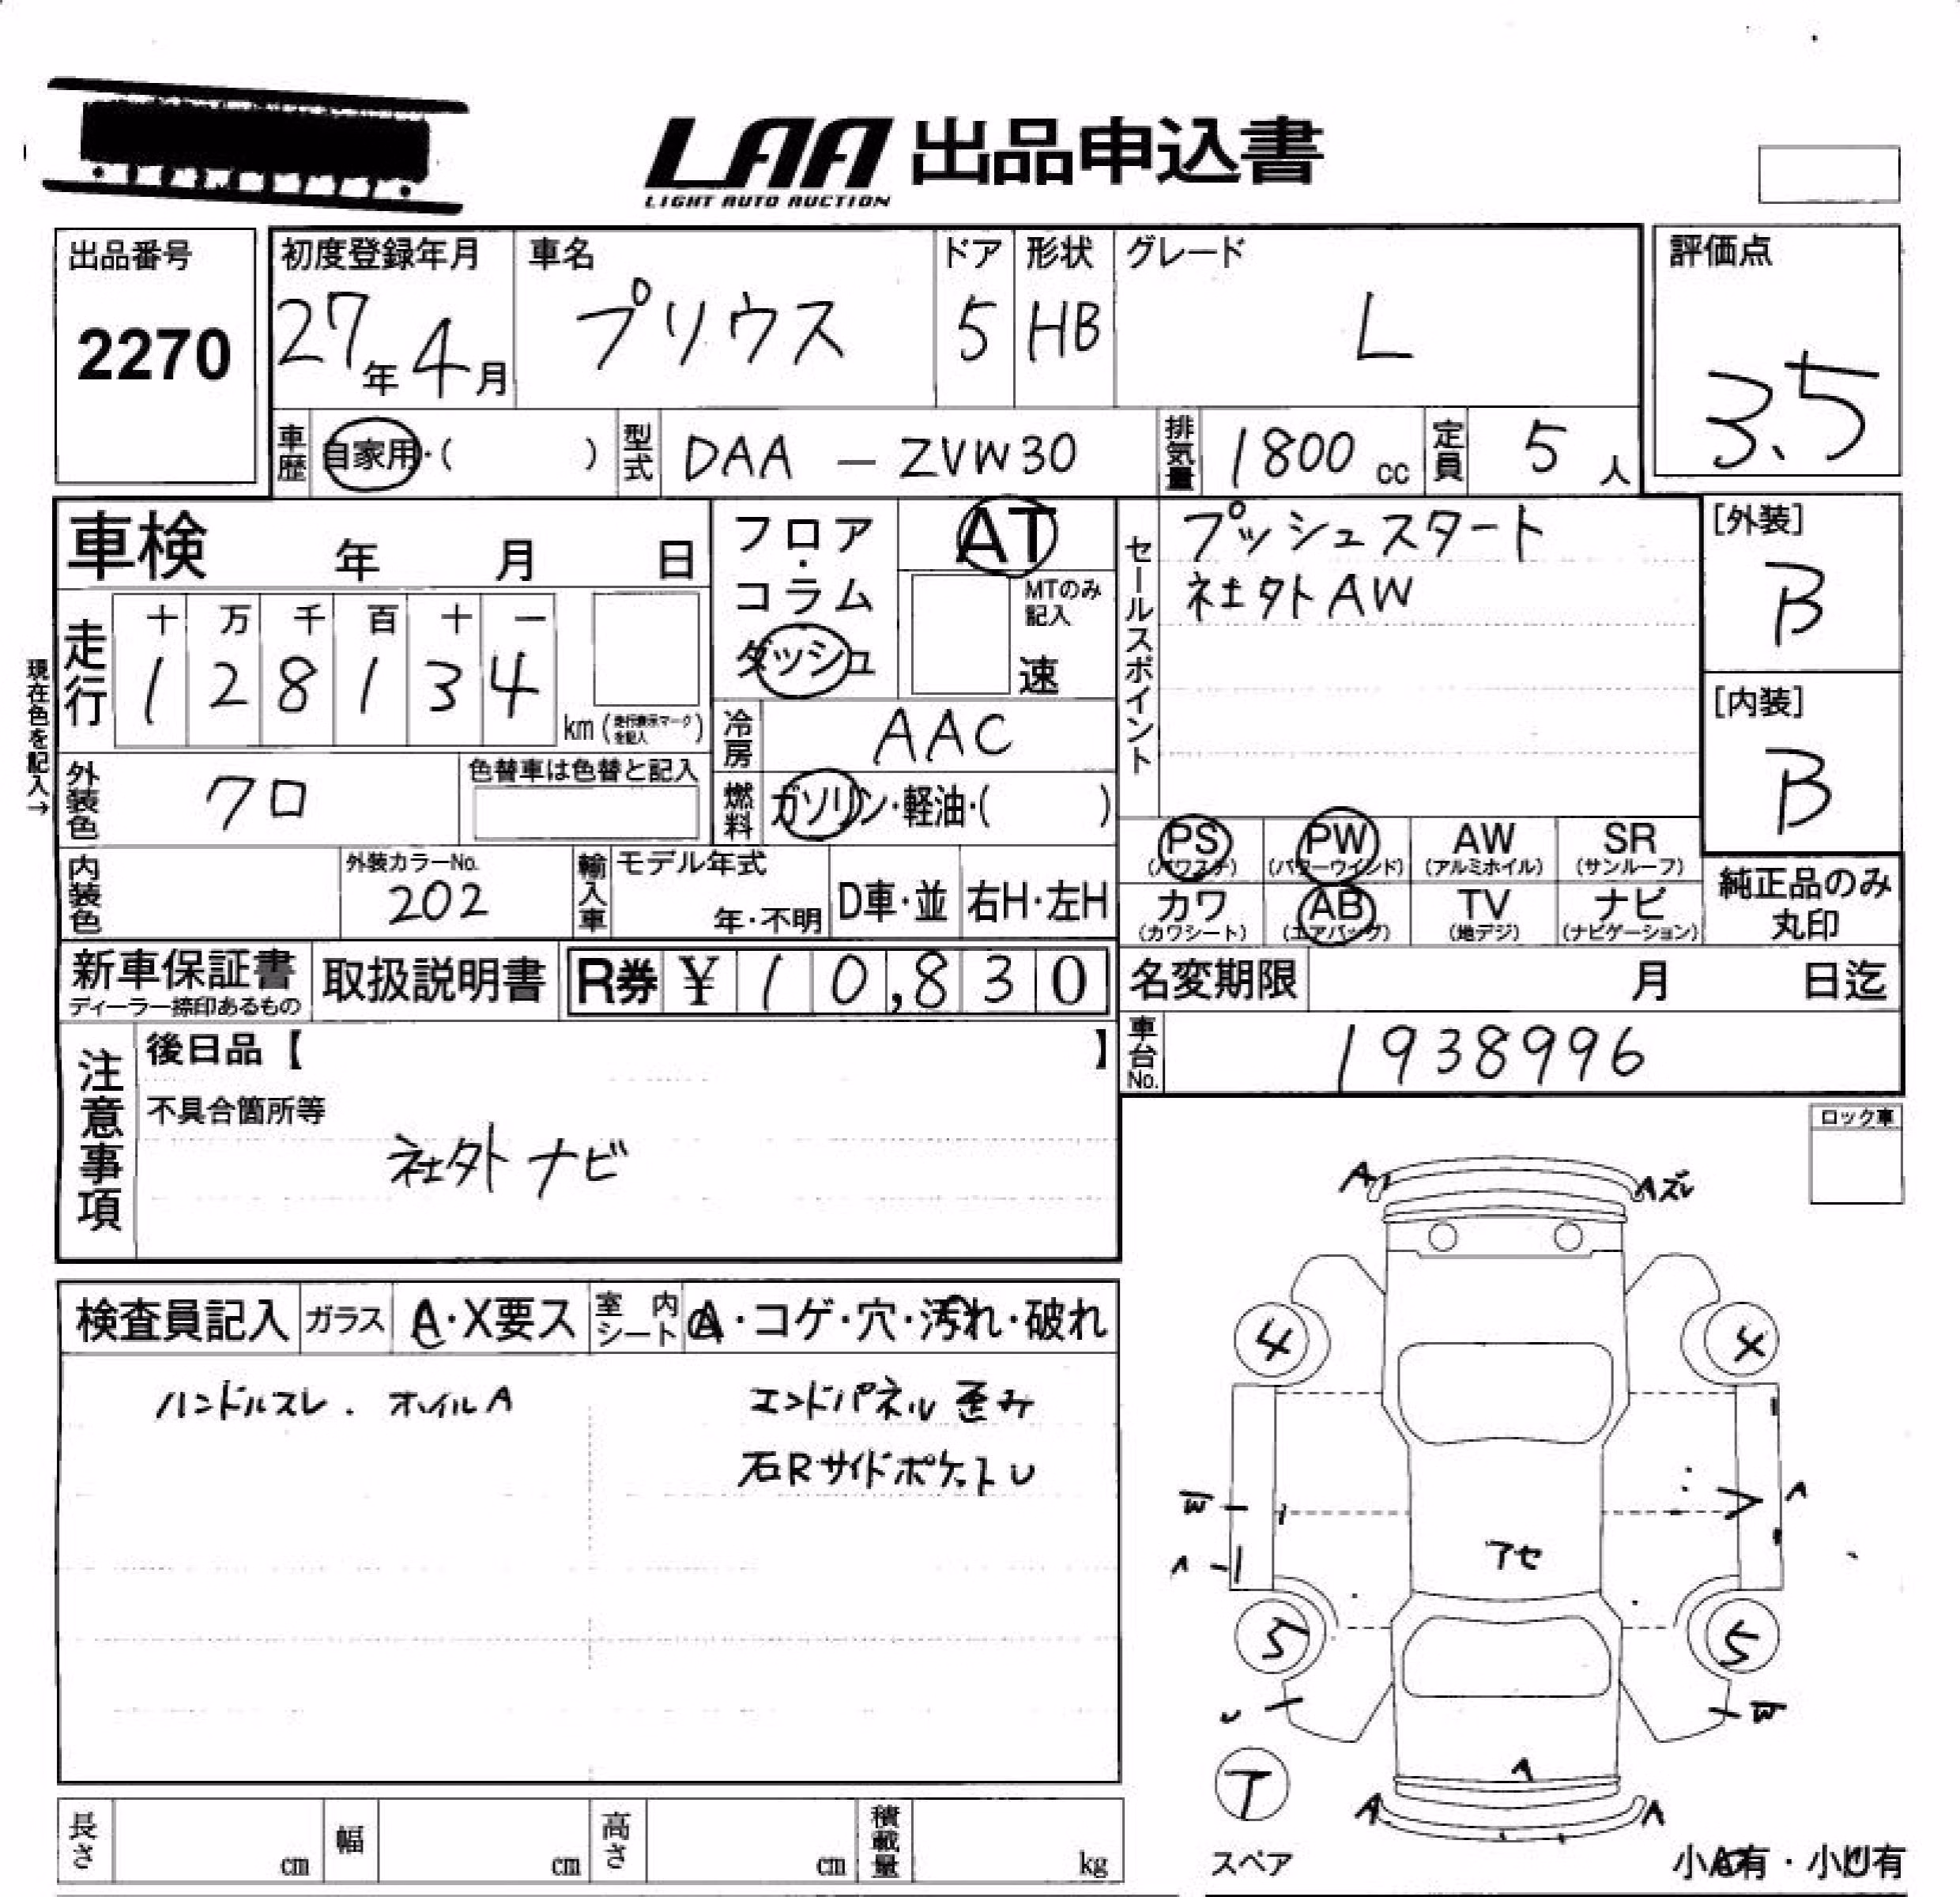 LAA 出品申込書
LIGHT AUTO AUCTION
出品番号
2270
初度登録年月
27年4月
車名
プリウス
ドア
5
形状
HB
グレード
L
評価点
3.5
車歴
自家用・( )
型式
DAA - ZVW30
排気量
1800 cc
定員
5人
車検 年 月 日
フロア・コラム
ダッシュ
AT
MTのみ記入
速
セールスポイント
プッシュスタート
社外AW
[外装]
B
[内装]
B
現在色を記入→
走行
十 万 千 百 十 一
1 2 8 1 3 4
km (走行表示マークを記入)
冷房
AAC
外装色
クロ
色替車は色替と記入
燃料
ガソリン・軽油・( )
PS (パワステ)
PW (パワーウインド)
AW (アルミホイル)
SR (サンルーフ)
カワ (カワシート)
AB (エアバッグ)
TV (地デジ)
ナビ (ナビゲーション)
純正品のみ
丸印
内装色
外装カラーNo.
202
輸入車
モデル年式
年・不明
D車・並
右H・左H
新車保証書
ディーラー捺印あるもの
取扱説明書
R券 ¥ 10,830
名変期限 月 日迄
車台No.
1938996
注意事項
後日品【 】
不具合箇所等
社外ナビ
ロック車
検査員記入
ガラス
A・X要ス
室内シート
A・コゲ・穴・汚れ・破れ
ハンドルスレ. オイルA
エンドパネル歪み
右RサイドポケットU
A
Aズレ
4
4
W
A
A
アセ
5
5
U
W
T
A
A
A
スペア
小A有・小U有
長さ cm
幅 cm
高さ cm
積載量 kg